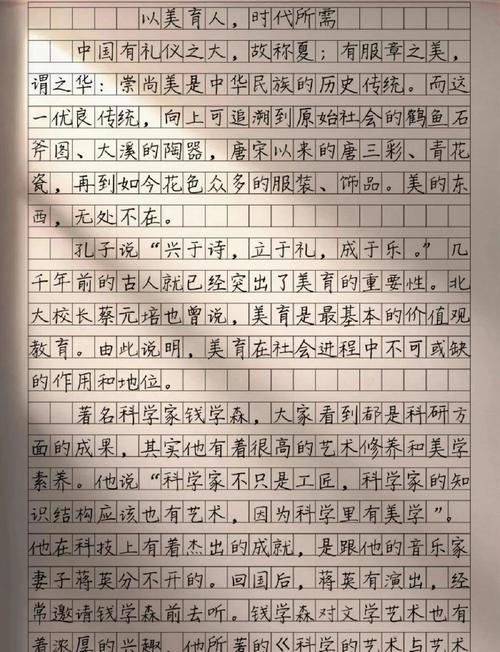 以美育人，时代所需
中国有礼仪之大，故称夏；有服章之美，
谓之华：崇尚美是中华民族的历史传统。而这
一优良传统，向上可追溯到原始社会的鹤鱼石
斧图、大溪的陶器，唐宋以来的唐三彩、青花
瓷，再到如今花色众多的服装、饰品。美的东
西，无处不在。
孔子说“兴于诗，立于礼，成于乐。”几
千年前的古人就已经突出了美育的重要性。北
大校长蔡元培也曾说，美育是最基本的价值观
教育。由此说明，美育在社会进程中不可或缺
的作用和地位。
著名科学家钱学森，大家看到都是科研方
面的成果，其实他有着很高的艺术修养和美学
素养。他说“科学家不只是工匠，科学家的知
识结构应该也有艺术，因为科学里有美学”。
他在科技上有着杰出的成就，是跟他的音乐家
妻子蒋英分不开的。回国后，蒋英有演出，经
常邀请钱学森前去听。钱学森对文学艺术也有
着浓厚的兴趣，他所著的《科学的艺术与艺术